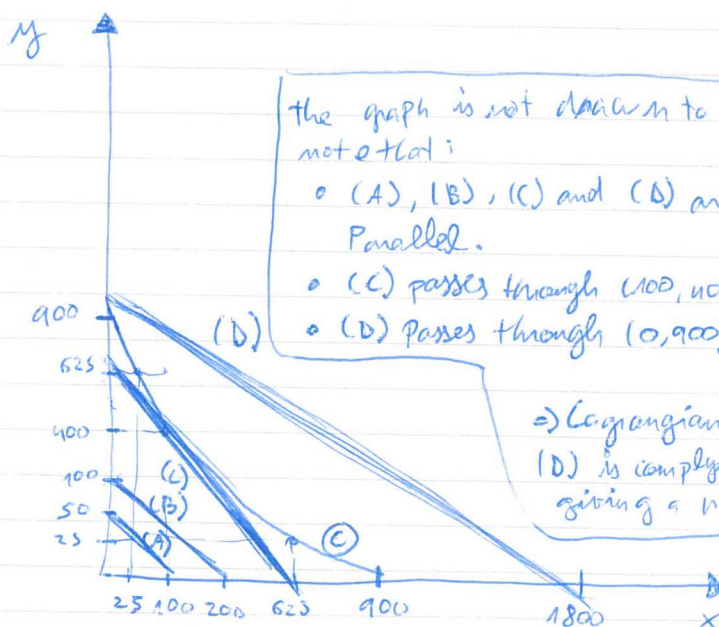 y
the graph is not drawn to
note that:
• (A), (B), (C) and (D) ar
Parallel.
• (C) passes through (100, 400
• (D) passes through (0,900,
=> Lagrangian
(D) is simply
giving a n
900
(D)
625
400
100
(C)
50
(B)
25
(A)
C
25 100 200 625 900 1800 x